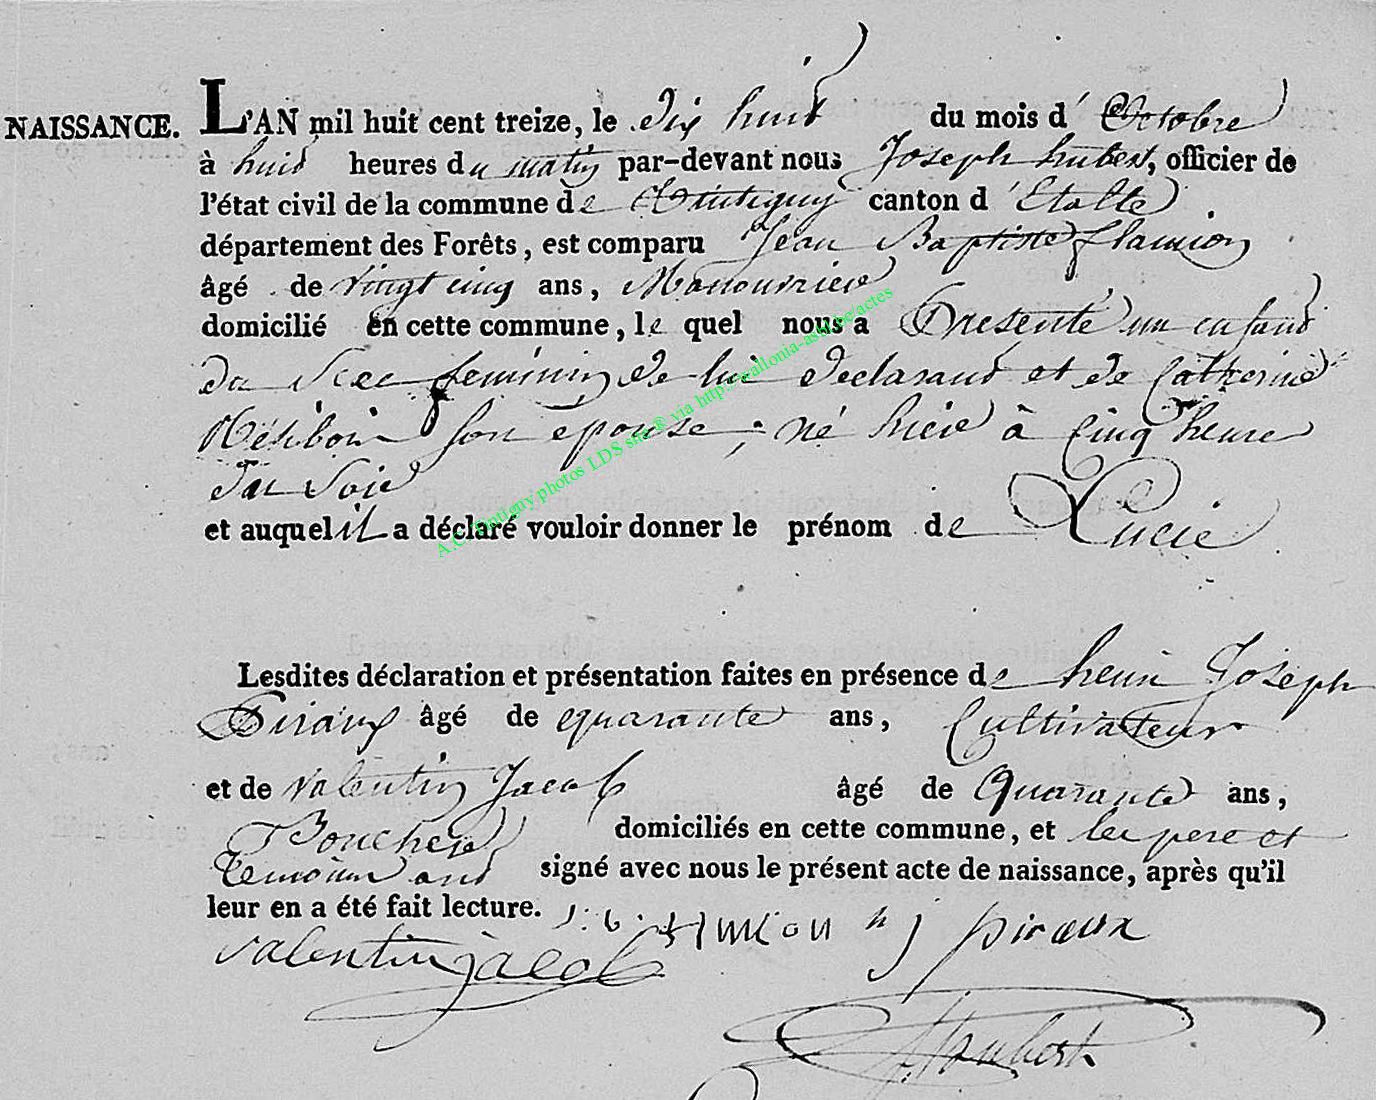 NAISSANCE. L'AN mil huit cent treize, le dix huit du mois d'Octobre
à huit heures du matin par-devant nous Joseph hubert, officier de
l'état civil de la commune de Tintigny canton d'Etalle
département des Forêts, est comparu Jean Baptiste flamion
âgé de vingt cinq ans, Manouvrier
domicilié en cette commune, le quel nous a Presenté un enfant
du Sexe feminin de lui declarant et de Catherine
son epouse; né hier à Cinq heure
du Soir
et auquel il a déclaré vouloir donner le prénom de Lucie
Lesdites déclaration et présentation faites en présence de henri Joseph
Piraux âgé de quarante ans, Cultivateur
et de valentin Jacob âgé de Quarante ans,
Boucher domiciliés en cette commune, et les pere et
temoins ont signé avec nous le présent acte de naissance, après qu'il
leur en a été fait lecture. J. b. flamion h j piraux
valentin jacob
A.C. Tintigny photos LDS site ® via http://wallonia-asbl.be/actes